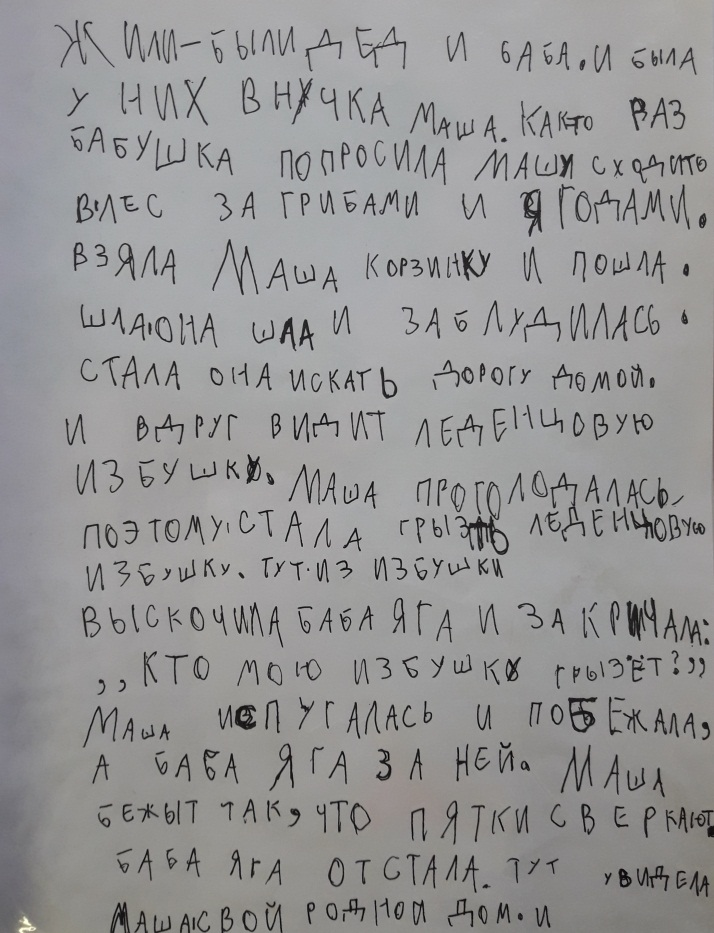 ЖИЛИ-БЫЛИ ДЕД И БАБА. И БЫЛА
У НИХ ВНУЧКА МАША. КАКТО РАЗ
БАБУШКА ПОПРОСИЛА МАШУ СХОДИТЬ
В ЛЕС ЗА ГРИБАМИ И ЯГОДАМИ.
ВЗЯЛА МАША КОРЗИНКУ И ПОШЛА.
ШЛА ОНА ШЛА И ЗАБЛУДИЛАСЬ.
СТАЛА ОНА ИСКАТЬ ДОРОГУ ДОМОЙ.
И ВДРУГ ВИДИТ ЛЕДЕНЦОВУЮ
ИЗБУШКУ. МАША ПРОГОЛОДАЛАСЬ,
ПОЭТОМУ СТАЛА ГРЫЗТЬ ЛЕДЕНЦОВУЮ
ИЗБУШКУ. ТУТ ИЗ ИЗБУШКИ
ВЫСКОЧИЛА БАБА ЯГА И ЗАКРИЧАЛА:
,,КТО МОЮ ИЗБУШКУ ГРЫЗЁТ?,,
МАША ИСПУГАЛАСЬ И ПОБЕЖАЛА,
А БАБА ЯГА ЗА НЕЙ. МАША
БЕЖЫТ ТАК, ЧТО ПЯТКИ СВЕРКАЮТ.
БАБА ЯГА ОТСТАЛА. ТУТ УВИДЕЛА
МАША СВОЙ РОДНОЙ ДОМ. И